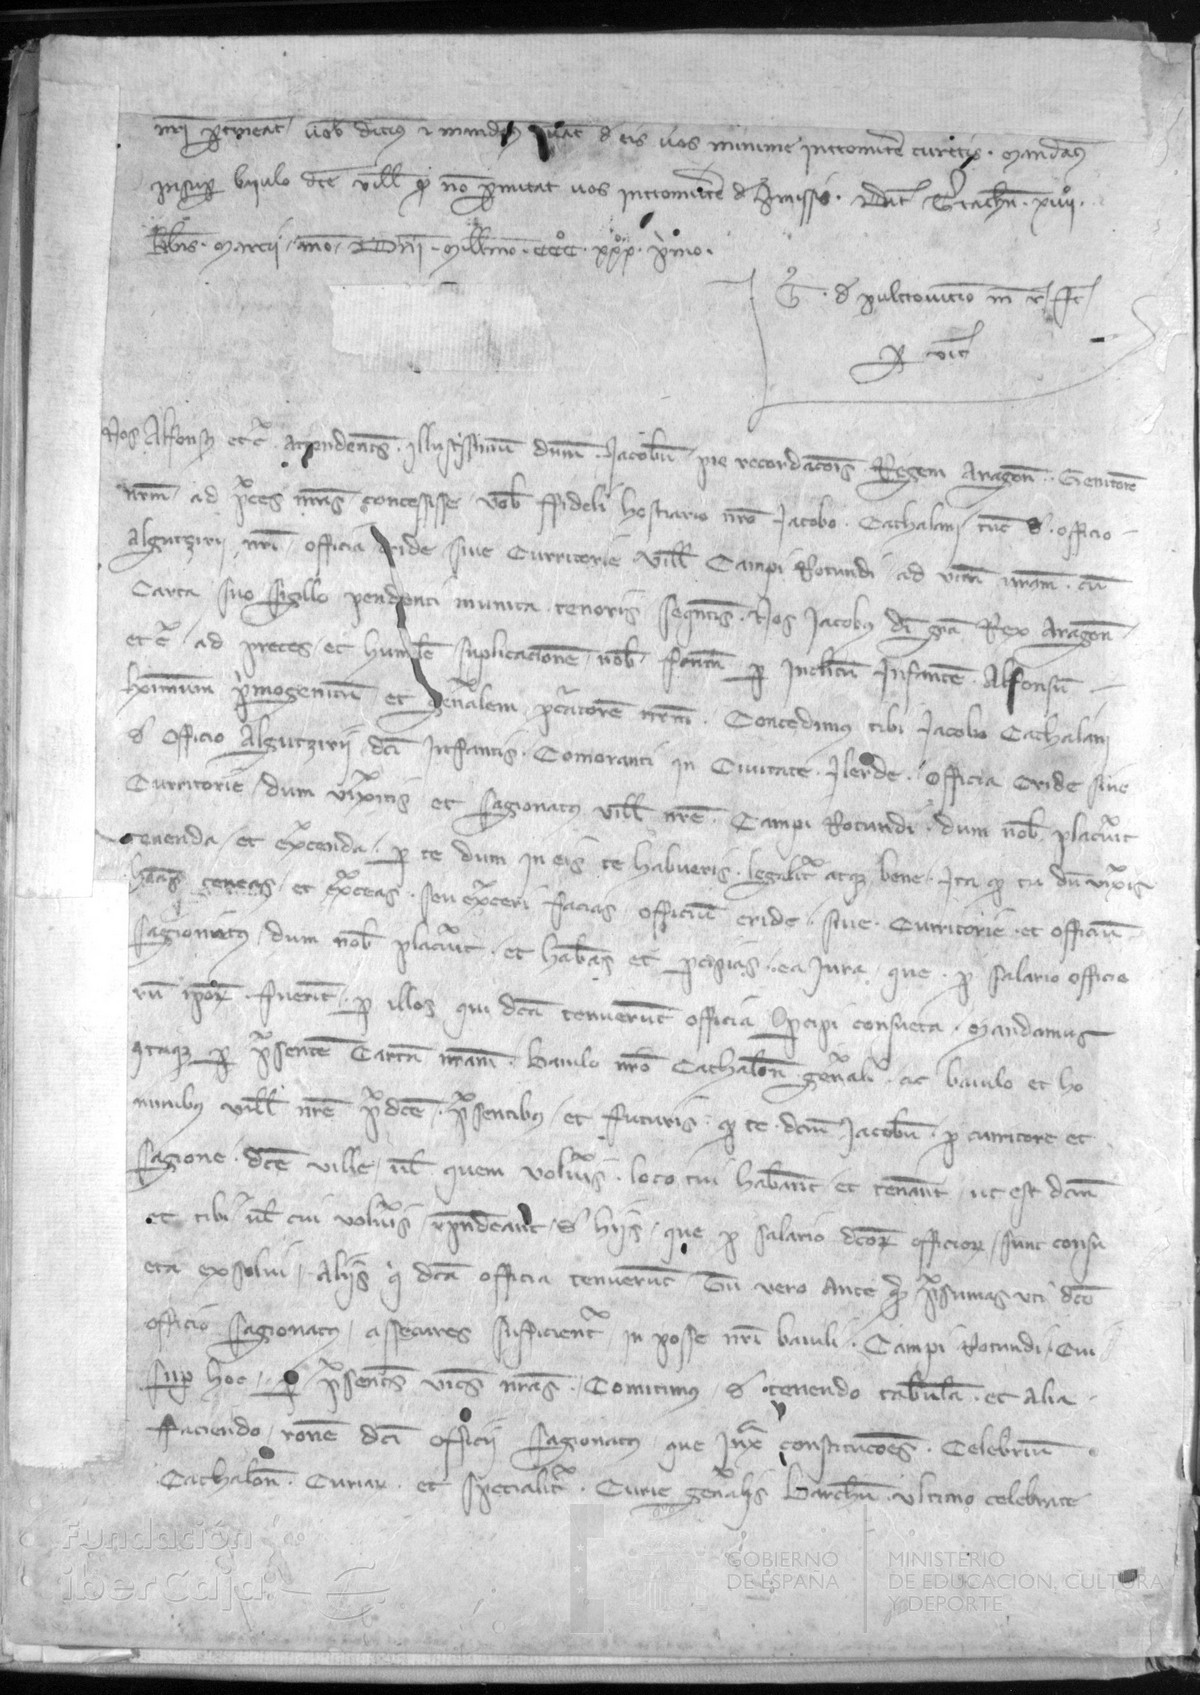 nri ptineat vob dicim⁊ ⁊ mandam⁊ de eis vos minime intromitte curetis. mandam⁊
insup baiulo dce vill q no pmittat vos intromitte d pmissis. Dat xiiii.
klns. marcii. anno Dni. millmo. CCC. xxx. pmo.
G. d m r fc
vic
Nos Alfons⁊ etc. attendents. illustrissimu dnm. Jacobu pie recordacois Regem Aragon. Genitore
nrm ad pces nras concessisse vob ffideli hostiario nro Jacobo. Cathalani tuc d. officio
Algutzirii nri officia cride sive Curritorie vill Campi Rotundi ad vita vram. cu
Carta suo sigillo pendenti munita tenoris seqntis. Nos Jacobus di gra Rex Aragon
etc. ad preces et humile suplicacione nob. factam p Inclitu Infante. Alfonsu
kximum pmogenitum et gnalem pcuratore nrm. Concedimus tibi Jacobo Cathalani
d officio Algutzirii dci Infantis. Comoranti in Civitate. Ilerde. officia Cride sive
Curritorie dum vixeris et sagionatus vill nre. Campi Rotundi. dum nob. placuit
tenenda et exercenda p te dum in eis te habueris. legalit atq bene. Ita q tu du vixis
habeas teneas et exceas. seu exceri facias officiu cride. sive. Curritorie et officiu
sagionatus dum nob placuit. et habeas et pcipias. ea Jura que. p salario officio
ru ipor. fuerit p illos qui dca tenuerut officia pcipi consueta. Mandamus
itaq p psente Carta nram. Baiulo nro Cathalon gnali. ac baiulo et ho
minibus vill nre pdce. psentibus et futuris. q te. dcm Jacobu. p curritore et
sagione. dce ville vl quem voluis. loco tui habeant et teneant ut est dcm
et tibi vl cui voluis rpndeant d hiis que p salario dcor officior sunt consu
eta exsolvi Aliis q dca officia tenuerut Tu vero Ante q psumas uti dco
officio sagionatus assecures sufficient in posse nri baiuli. Campi Rotundi. Cui
sup hoc. p psents vics nras. Comitimus d tenendo tabula. et alia
faciendo rone dci officii sagionatus que Juxta constitucoes. Celebriu
Cathalon. Curiar. et specialit. Curie gnalis Barchn ultimo celebrate
Fundación
iberCaja
GOBIERNO
DE ESPAÑA
MINISTERIO
DE EDUCACIÓN, CULTURA
Y DEPORTE